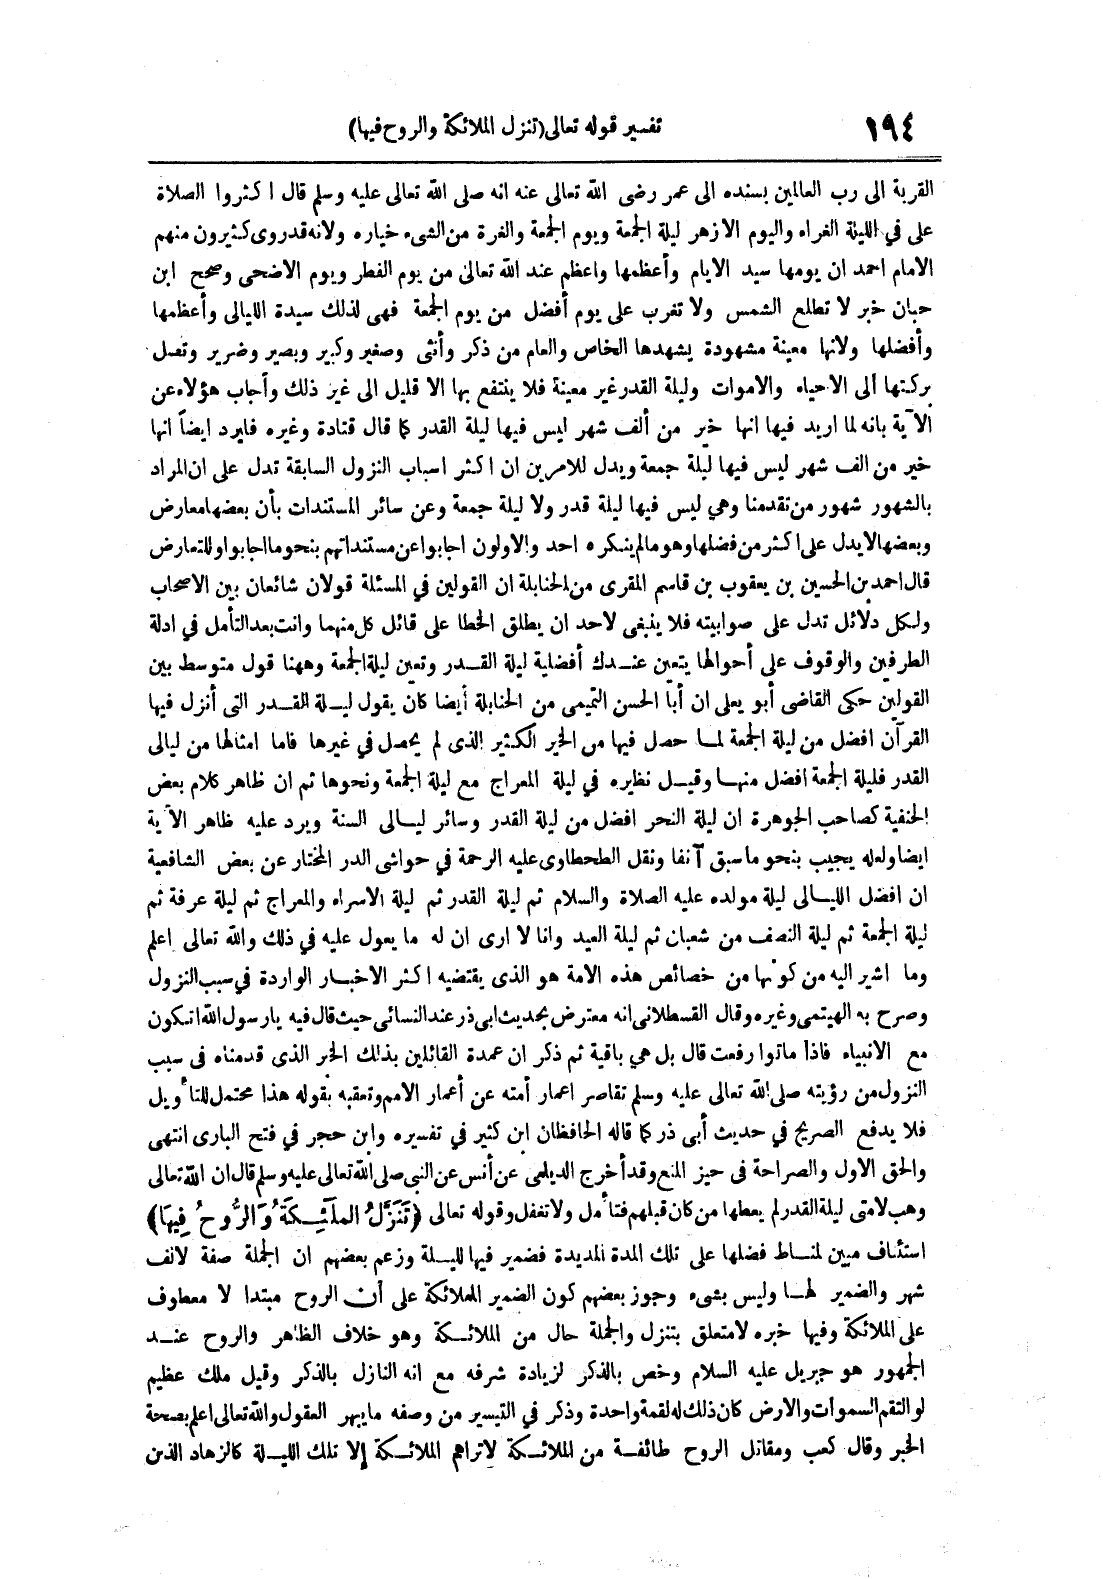 ١٩٤
تفسير قوله تعالى (تنزل الملائكة والروح فيها)
القربة الى رب العالمين بسنده الى عمر رضى الله تعالى عنه انه صلى الله تعالى عليه وسلم قال اكثروا الصلاة
على في الليلة الغراء واليوم الازهر ليلة الجمعة ويوم الجمعة والغرة من الشىء خياره ولانه قدروى كثيرون منهم
الامام احمد ان يومها سيد الايام وأعظمها واعظم عند الله تعالى من يوم الفطر ويوم الاضحى وصحح ابن
حبان خبر لا تطلع الشمس ولا تغرب على يوم أفضل من يوم الجمعة فهى لذلك سيدة الليالى وأعظمها
وأفضلها ولانها معينة مشهودة يشهدها الخاص والعام من ذكر وأنثى وصغير وكبير وبصير وضرير وتصل
بركتها ألى الاحياء والاموات وليلة القدر غير معينة فلا ينتفع بها الا قليل الى غير ذلك وأجاب هؤلاء عن
الآية بانه لما اريد فيها انها خير من ألف شهر ليس فيها ليلة القدر كما قال قتادة وغيره فايرد ايضاً انها
خير من الف شهر ليس فيها ليلة جمعة ويدل للامرين ان اكثر اسباب النزول السابقة تدل على ان المراد
بالشهور شهور من تقدمنا وهي ليس فيها ليلة قدر ولا ليلة جمعة وعن سائر المستندات بأن بعضها معارض
وبعضها لايدل على اكثر من فضلها وهو مالم ينكره احد والاولون اجابوا عن مستنداتهم بنحو ما اجابوا وللتعارض
قال احمد بن الحسين بن يعقوب بن قاسم المقرى من الحنابلة ان القولين في المسئلة قولان شائعان بين الاصحاب
ولكل دلائل تدل على صوابيته فلا ينبغى لاحد ان يطلق الخطا على قائل كل منهما وانت بعد التأمل في ادلة
الطرفين والوقوف على أحوالها يتعين عندك أفضلية ليلة القدر وتعين ليلة الجمعة وههنا قول متوسط بين
القولين حكى القاضى أبو يعلى ان أبا الحسن التميمى من الحنابلة أيضا كان يقول ليلة القدر التى أنزل فيها
القرآن افضل من ليلة الجمعة لما حصل فيها من الخير الكثير الذى لم يحصل في غيرها فاما امثالها من ليالى
القدر فليلة الجمعة افضل منها وقيل نظيره في ليلة المعراج مع ليلة الجمعة ونحوها ثم ان ظاهر كلام بعض
الحنفية كصاحب الجوهرة ان ليلة النحر افضل من ليلة القدر وسائر ليالى السنة ويرد عليه ظاهر الآية
ايضا ولعله يجيب بنحو ما سبق آنفا ونقل الطحطاوى عليه الرحمة في حواشى الدر المختار عن بعض الشافعية
ان افضل الليالى ليلة مولده عليه الصلاة والسلام ثم ليلة القدر ثم ليلة الاسراء والمعراج ثم ليلة عرفة ثم
ليلة الجمعة ثم ليلة النصف من شعبان ثم ليلة العيد وانا لا ارى ان له ما يعول عليه في ذلك والله تعالى اعلم
وما اشير اليه من كونها من خصائص هذه الامة هو الذى يقتضيه اكثر الاخبار الواردة في سبب النزول
وصرح به الهيتمى وغيره وقال القسطلانى انه معترض بحديث ابى ذر عند النسائى حيث قال فيه يارسول الله اتكون
مع الانبياء فاذا ماتوا رفعت قال بل هي باقية ثم ذكر ان عمدة القائلين بذلك الخبر الذى قدمناه فى سبب
النزول من رؤيته صلى الله تعالى عليه وسلم تقاصر اعمار أمته عن أعمار الامم وتعقبه بقوله هذا محتمل للتأويل
فلا يدفع الصريح في حديث أبى ذر كما قاله الحافظان ابن كثير في تفسيره وابن حجر في فتح البارى انتهى
والحق الاول والصراحة فى حيز المنع وقد أخرج الديلمى عن أنس عن النبى صلى الله تعالى عليه وسلم قال ان الله تعالى
وهب لامتى ليلة القدر لم يعطها من كان قبلهم فتأمل ولا تغفل وقوله تعالى (تَنَزَّلُ الملَٰٓئِكَةُ وَالرُّوحُ فِيهَا)
استئناف مبين لمناط فضلها على تلك المدة المديدة فضمير فيها لليلة وزعم بعضهم ان الجملة صفة لالف
شهر والضمير لها وليس بشىء وجوز بعضهم كون الضمير للملائكة على أن الروح مبتدا لا معطوف
على الملائكة وفيها خبره لامتعلق بتنزل والجملة حال من الملائكة وهو خلاف الظاهر والروح عند
الجمهور هو جبريل عليه السلام وخص بالذكر لزيادة شرفه مع انه النازل بالذكر وقيل ملك عظيم
لو التقم السموات والارض كان ذلك له لقمة واحدة وذكر في التيسير من وصفه ما يبهر العقول والله تعالى اعلم بصحة
الخبر وقال كعب ومقاتل الروح طائفة من الملائكة لاتراهم الملائكة إلا تلك الليلة كالزهاد الذين